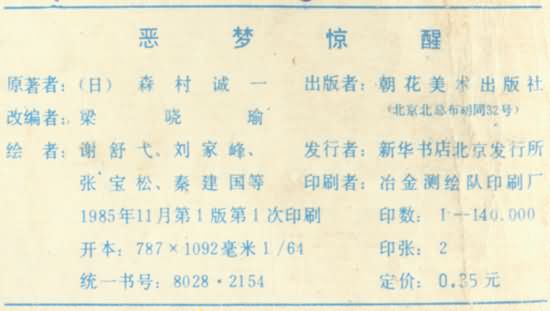 恶梦惊醒
原著者：(日) 森村诚一
改编者：梁晓瑜
绘者：谢舒弋、刘家峰、
张宝松、秦建国等
1985年11月第1版第1次印刷
开本：787×1092毫米1/64
统一书号：8028·2154
出版者：朝花美术出版社
(北京北总布胡同32号)
发行者：新华书店北京发行所
印刷者：冶金测绘队印刷厂
印数：1—140.000
印张：2
定价：0.35元